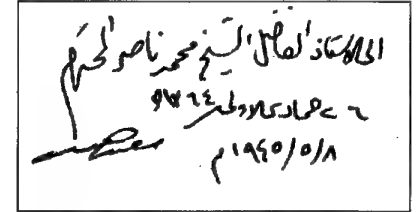 الى الاستاذ الفاضل الشيخ محمد ناصر المحترم
جمادى الاولى ١٣٦٤
١٩٤٥/٥/٨م